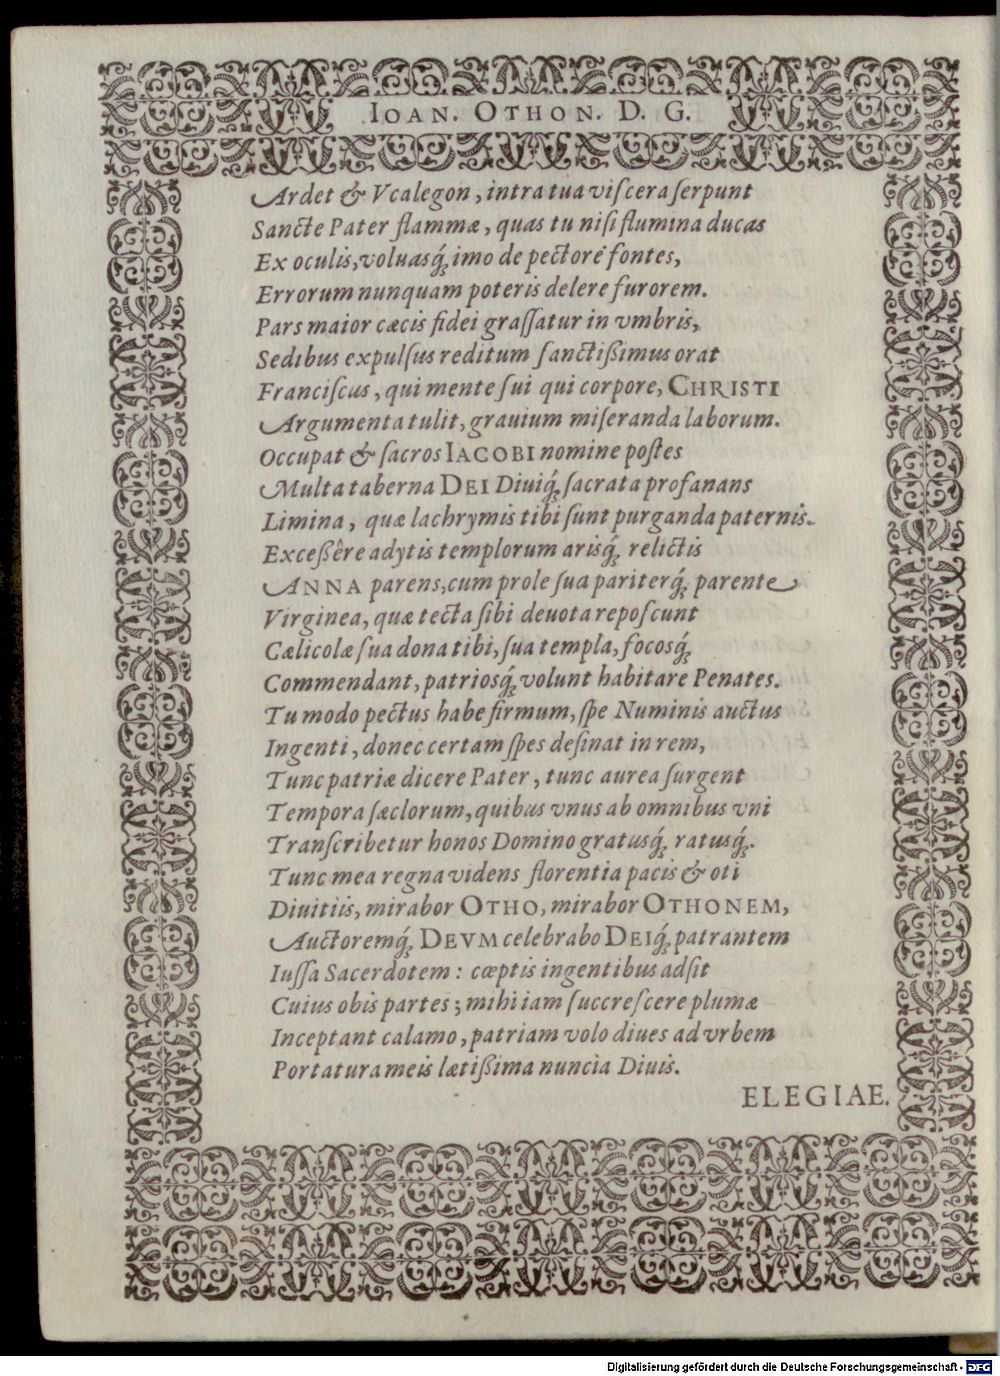 IOAN. OTHON. D. G.
Ardet & Vcalegon, intra tua viſcera ſerpunt
Sancte Pater flammæ, quas tu niſi flumina ducas
Ex oculis, voluasq́; imo de pectore fontes,
Errorum nunquam poteris delere furorem.
Pars maior cæcis fidei graſſatur in vmbris,
Sedibus expulſus reditum ſanctißimus orat
Franciſcus, qui mente ſui qui corpore, CHRISTI
Argumenta tulit, grauium miſeranda laborum.
Occupat & ſacros IACOBI nomine poſtes
Multa taberna DEI Diuiq́; ſacrata profanans
Limina, quæ lachrymis tibi ſunt purganda paternis.
Exceßêre adytis templorum arisq́; relictis
ANNA parens, cum prole ſua pariterq́; parente
Virginea, quæ tecta ſibi deuota repoſcunt
Cælicolæ ſua dona tibi, ſua templa, focosq́;
Commendant, patriosq́; volunt habitare Penates.
Tu modo pectus habe firmum, ſpe Numinis auctus
Ingenti, donec certam ſpes deſinat in rem,
Tunc patriæ dicere Pater, tunc aurea ſurgent
Tempora ſæclorum, quibus vnus ab omnibus vni
Tranſcribetur honos Domino gratusq́; ratusq́;.
Tunc mea regna videns florentia pacis & oti
Diuitiis, mirabor OTHO, mirabor OTHONEM,
Auctoremq́; DEVM celebrabo DEIq́; patrantem
Iuſſa Sacerdotem: cœptis ingentibus adſit
Cuius obis partes; mihi iam ſuccreſcere plumæ
Inceptant calamo, patriam volo diues ad vrbem
Portatura meis lætißima nuncia Diuis.
ELEGIAE.
Digitalisierung gefördert durch die Deutsche Forschungsgemeinschaft - DFG